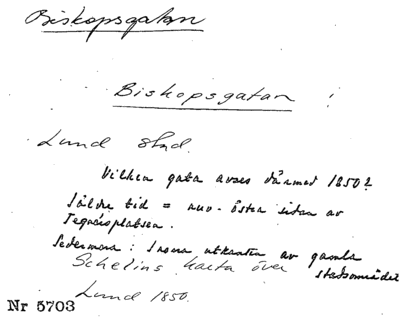 Biskopsgatan
Biskopsgatan !
Lund stad.
Vilken gata avses därmed 1850?
I äldre tid = nuv. östra sidan av
Tegnérsplatsen.
Sedermera: Inom utkanten av gamla
stadsområdet
Schelins karta över
Lund 1850.
Nr 5703